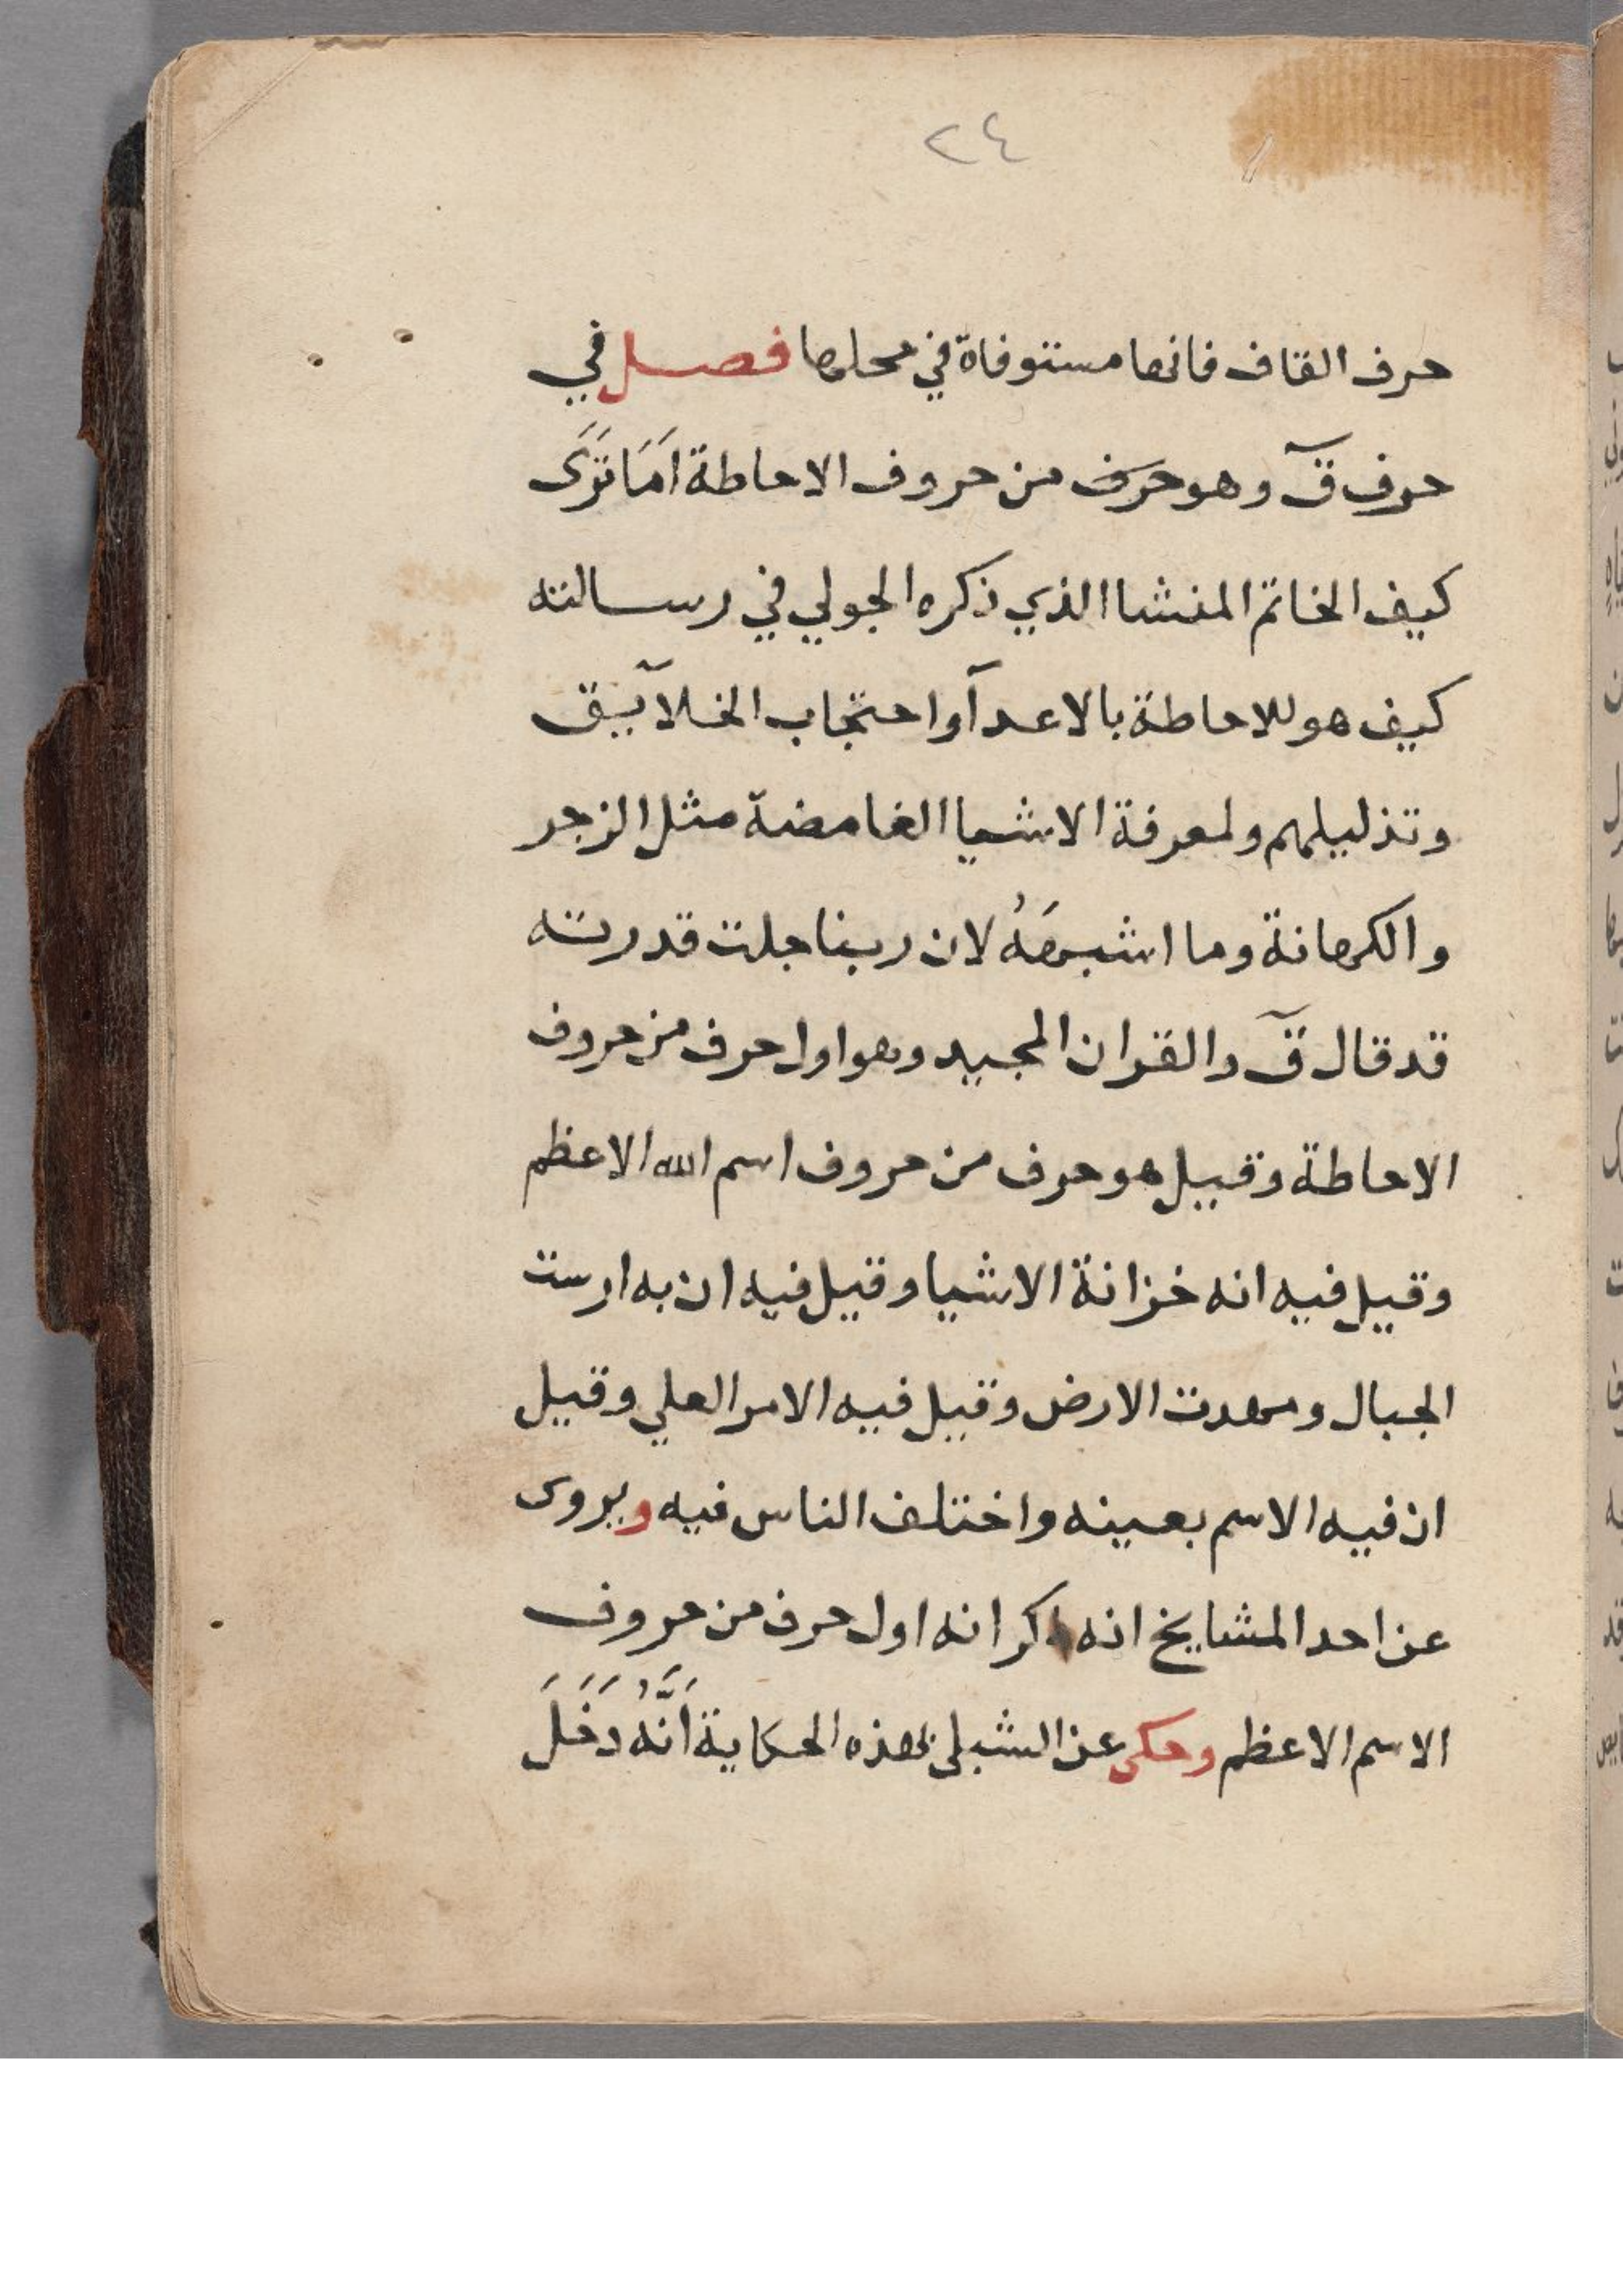 ٢٤
حرف القاف فانها مستوفاة في محلها فصل في
حرف قٓ وهو حرف من حروف الاحاطة اَمَا تَرَى
كيف الخاتم المنشا الذي ذكره الجولي في رسالته
كيف هو للاحاطة بالاعدآ واحتجاب الخلآيق
وتذليلهم ولمعرفة الاشيا الغامضة مثل الزجر
والكهانة وما اشبهَهُ لان ربنا جلت قدرته
قد قال قٓ والقران المجيد وهو اول حرف من حروف
الاحاطة وقيل هو حرف من حروف اسم الله الاعظم
وقيل فيه انه خزانة الاشيا وقيل فيه ان به ارست
الجبال ومهدت الارض وقيل فيه الامر العلي وقيل
ان فيه الاسم بعينه واختلف الناس فيه ويروى
عن احد المشايخ انه ذكر انه اول حرف من حروف
الاسم الاعظم وحكى عن الشبلى بهذه الحكاية اَنَّهُ دَخَلَ